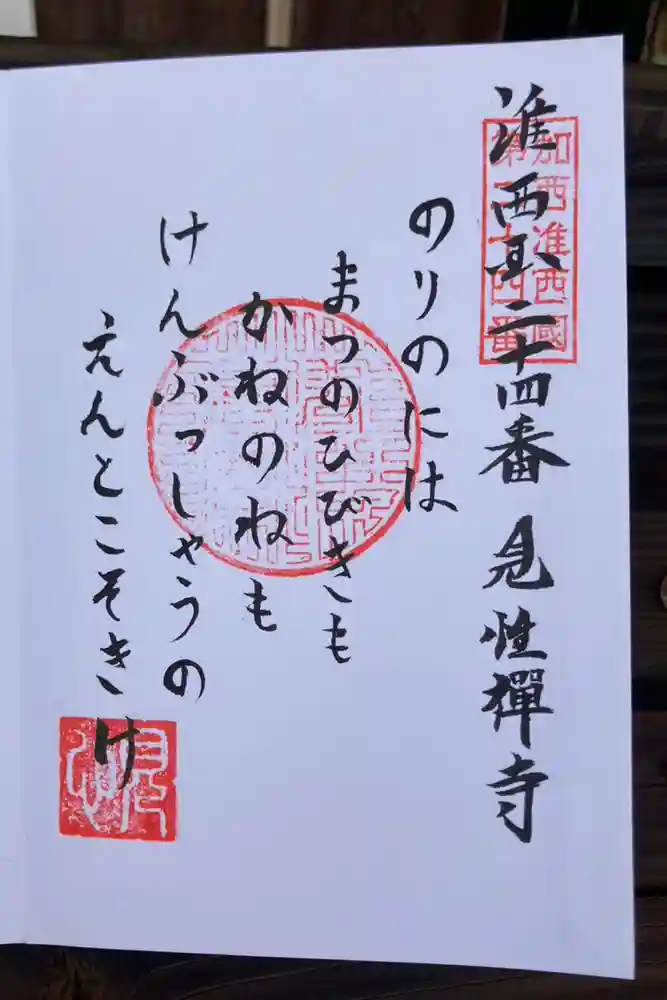 准西国二十四番 見性禅寺
加西准西國
第二十四番
のりのには
まつのひびきも
かねのねも
けんぶっしゃうの
えんとこそきけ
見性